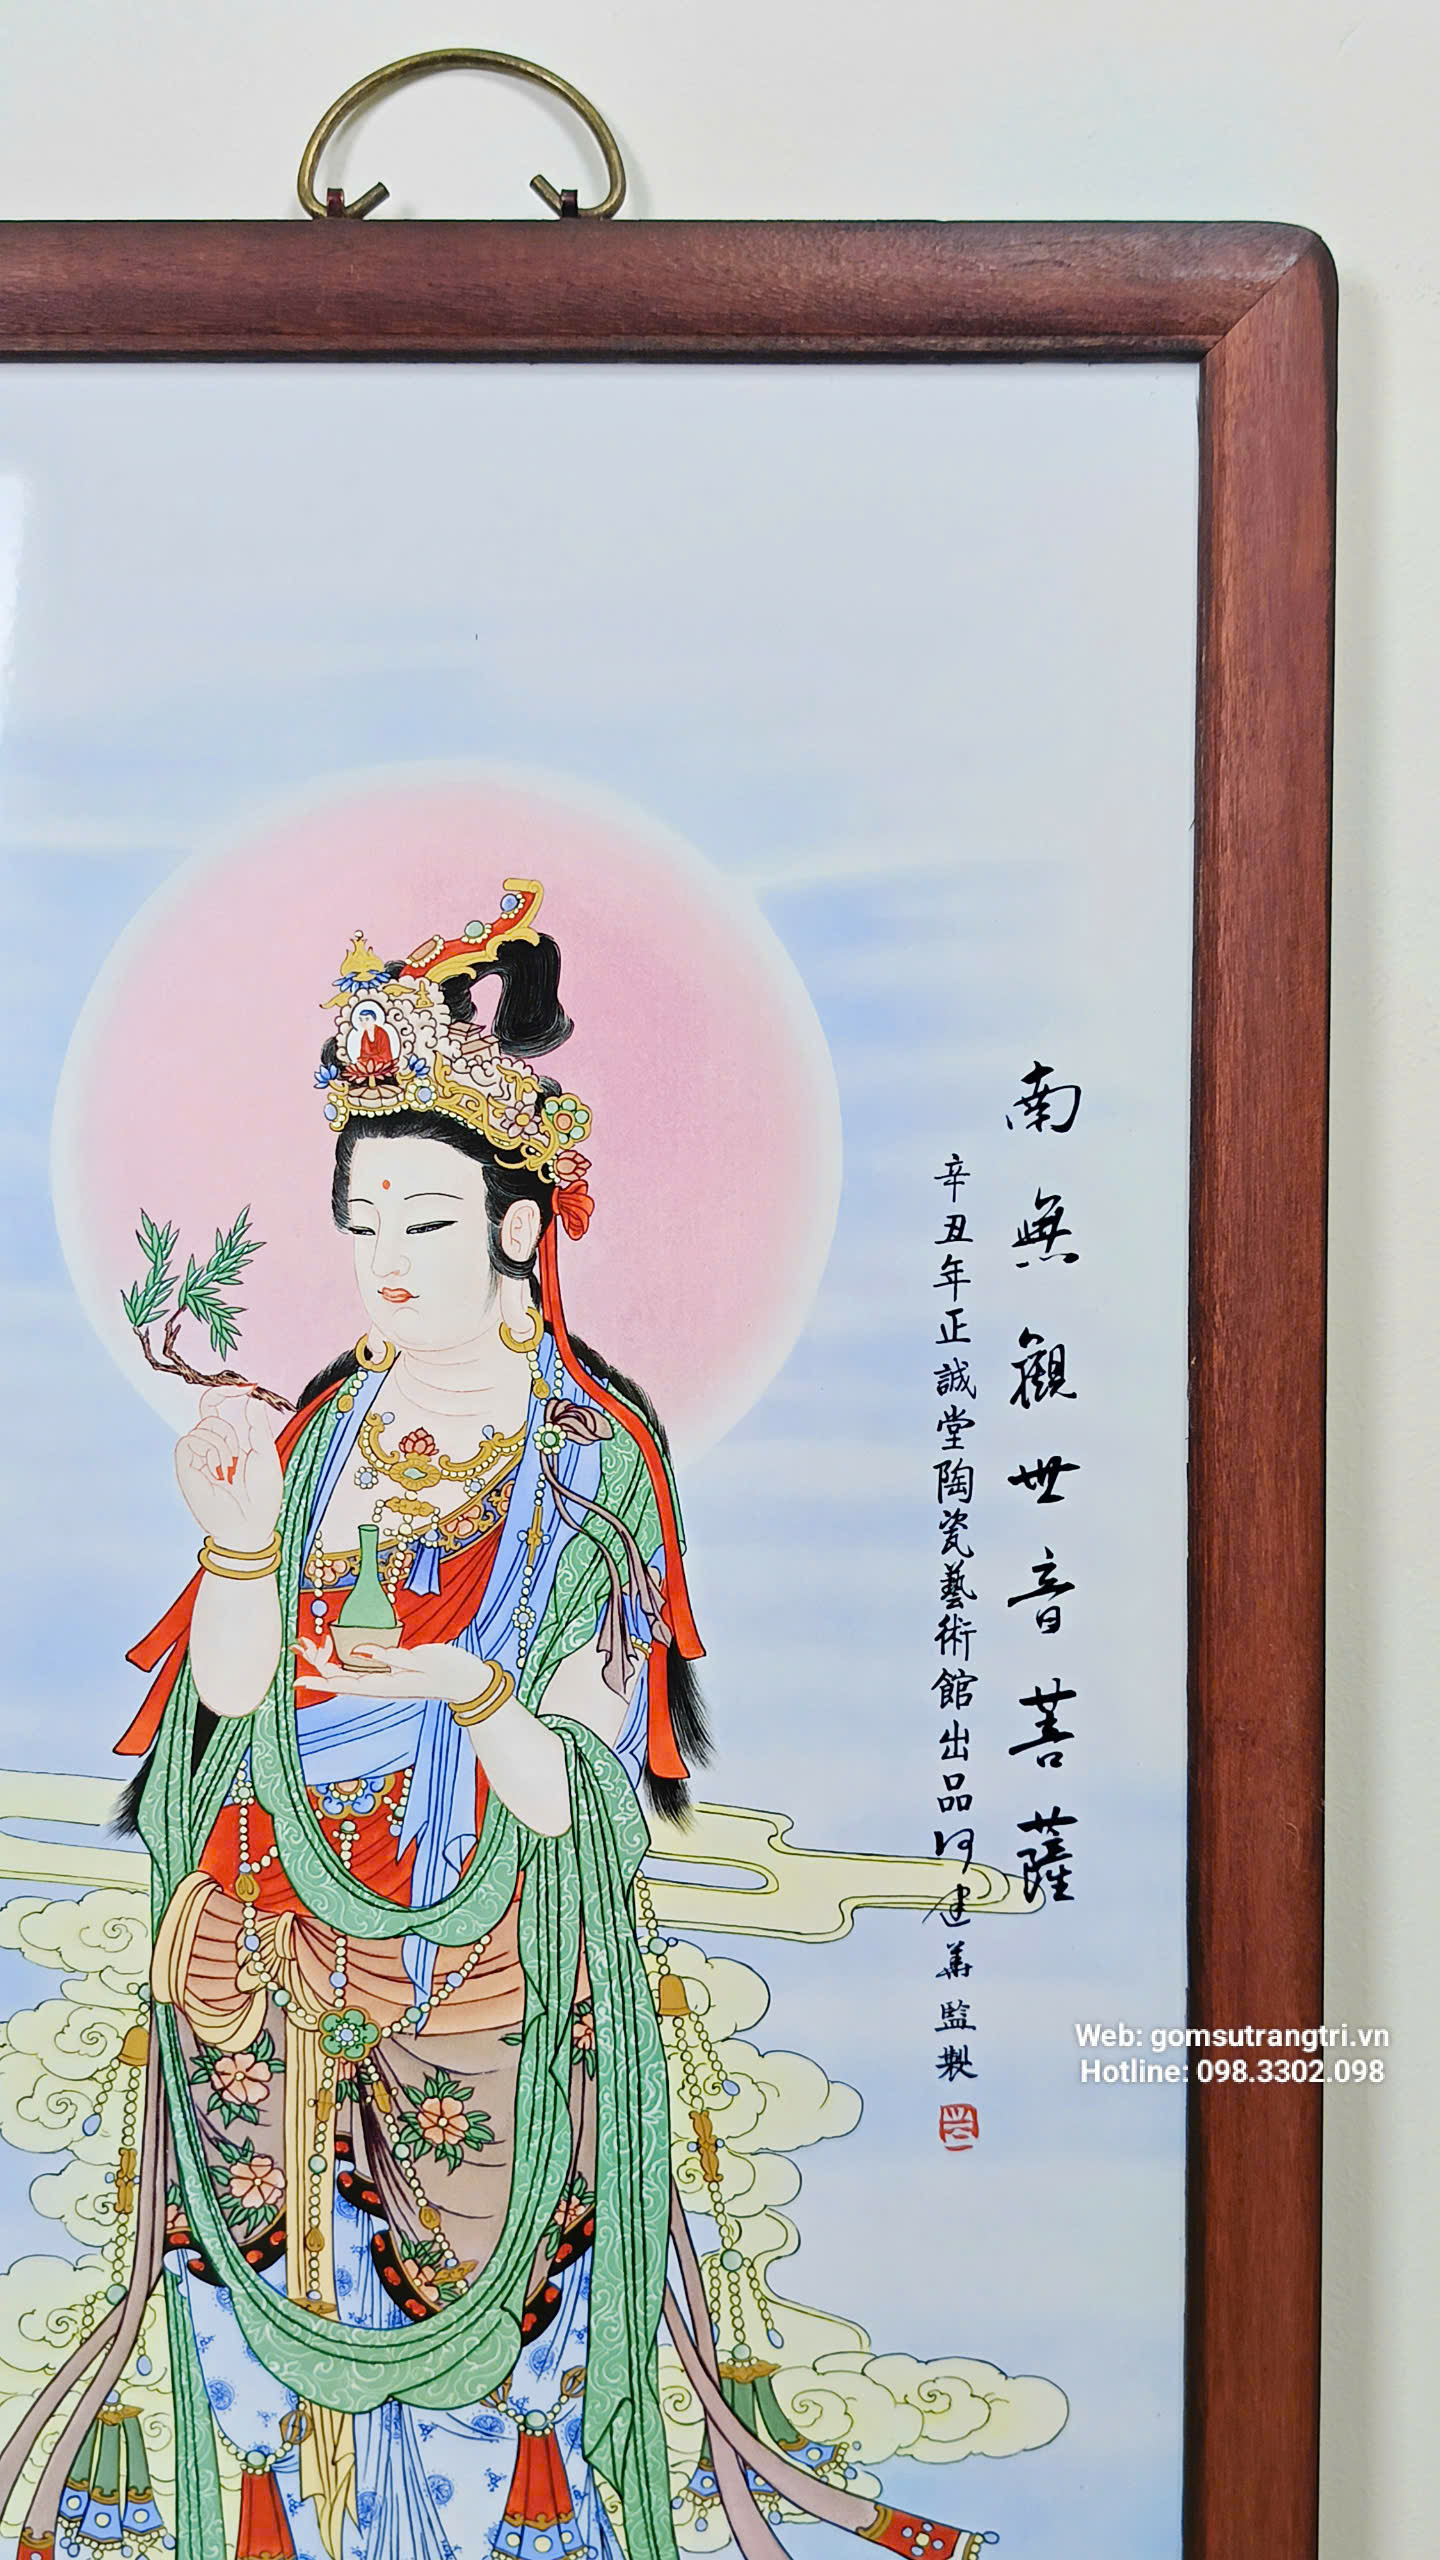 南無觀世音菩薩
辛丑年正誠堂陶瓷藝術館出品何建華監製
Web: gomsutrangtri.vn
Hotline: 098.3302.098